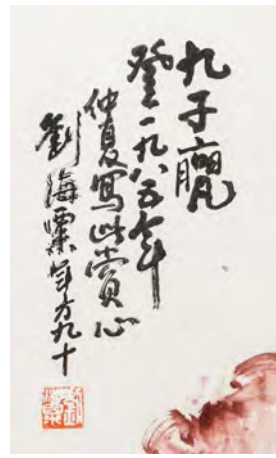 九子
登一九八五年
仲夏寫此賞心
劉海粟年方九十